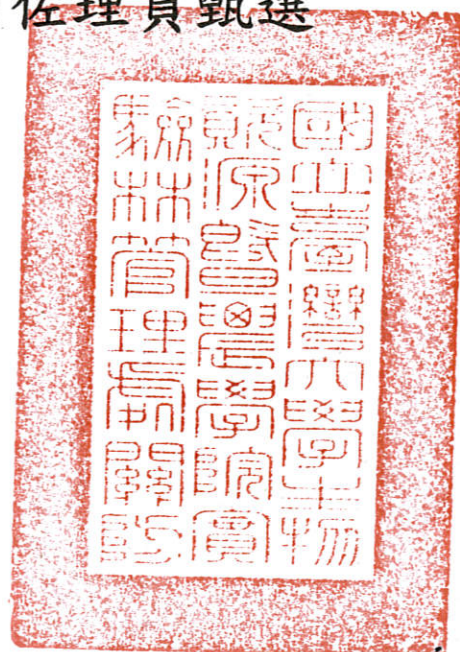 佐理員甄選
國立臺灣大學生物
資源暨農學院實
驗林管理處關防